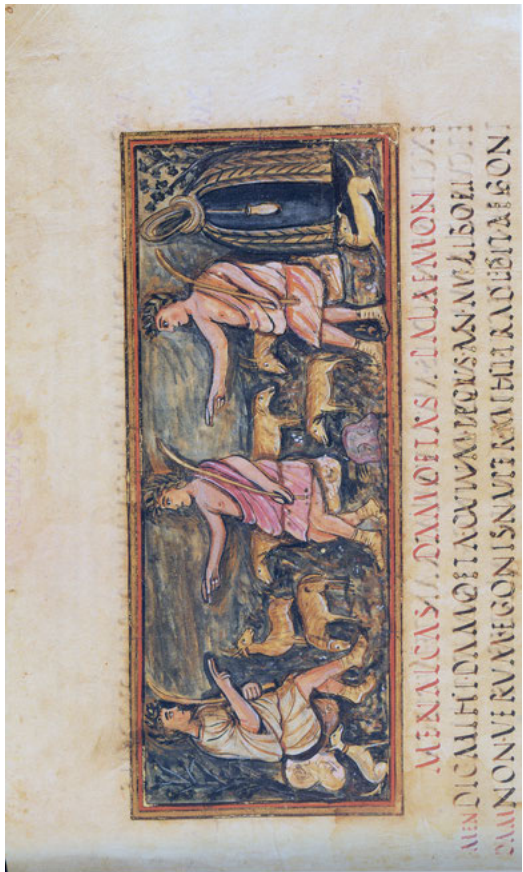 MENALCAS DAMOETAS PALAEMON
MEN DICMIHIDAMOETACVIVMPECVSANMELIBOEI
DAM NONVERVMAEGONISNVPERMIHITRADEDITAEGON